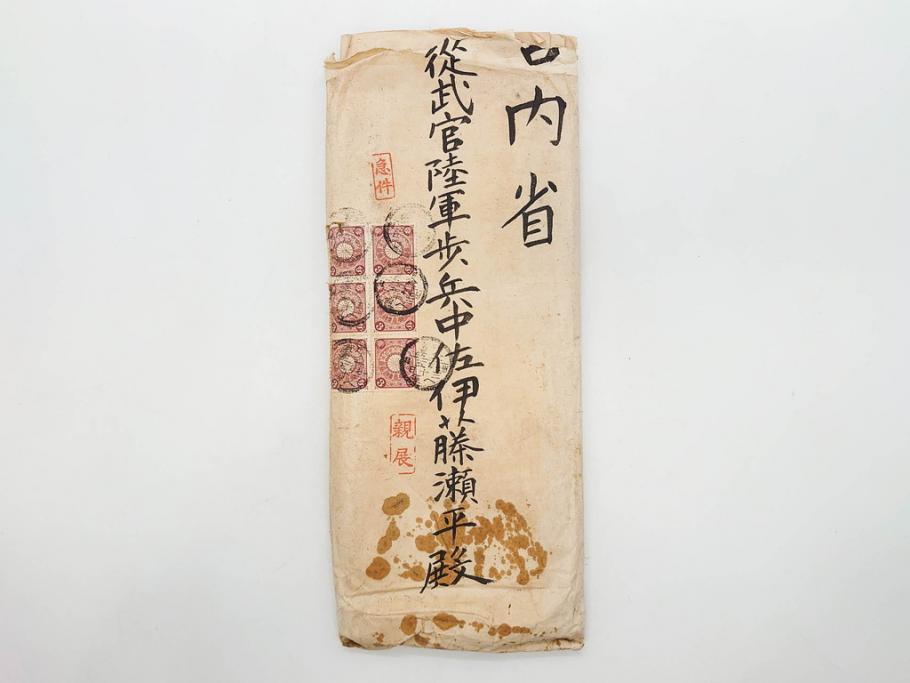 内省
從武官陸軍歩兵中佐伊藤瀬平殿
急件
親展